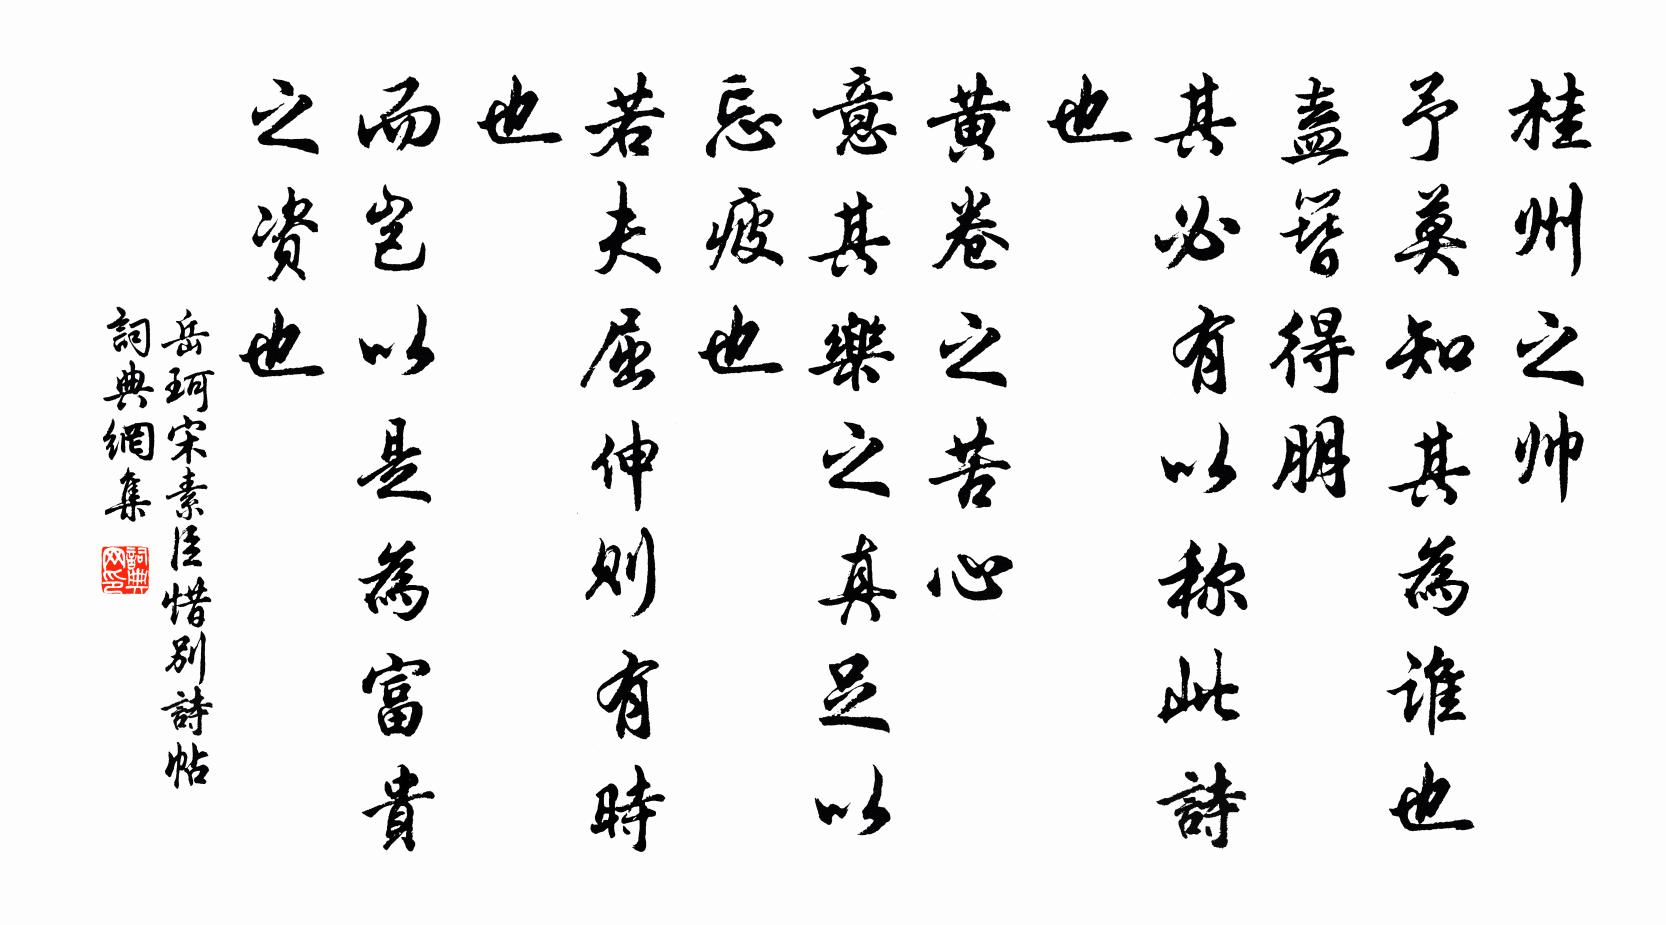 桂州之帅
予莫知其為谁也
盍簪得朋
其必有以称此詩
也
黄卷之苦心
意其樂之真足以
忘疲也
若夫屈伸则有時
也
而岂以是為富貴
之资也
岳珂宋素臣惜别詩帖
詞典網集
詞典
网印